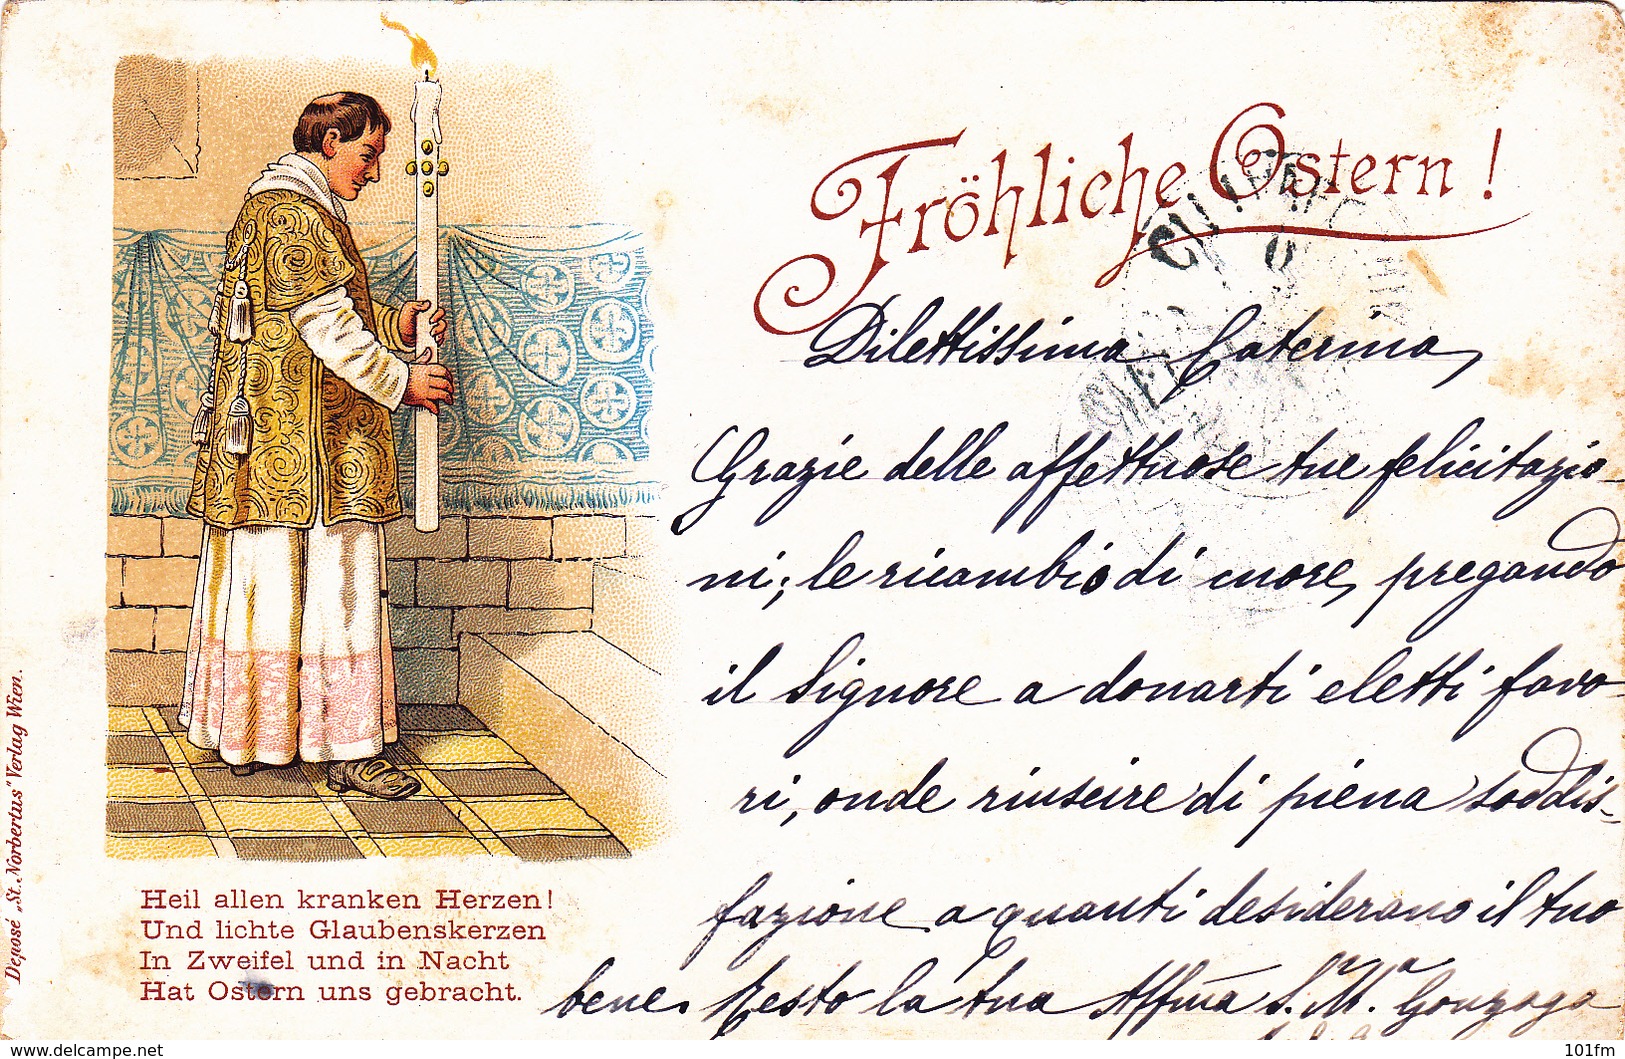 Fröhliche Ostern!
Dilettissima Caterina,
Grazie delle affettuose tue felicitazio-
ni; le ricambio di cuore, pregando
il Signore a donarti eletti favo-
ri, onde riuscire di piena soddis-
fazione a quanti desiderano il tuo
bene. Resto la tua Affma S. M.a Gonzaga
Heil allen kranken Herzen!
Und lichte Glaubenskerzen
In Zweifel und in Nacht
Hat Ostern uns gebracht.
Deposé „St. Norbertus" Verlag Wien.
delcampe.net
101fm